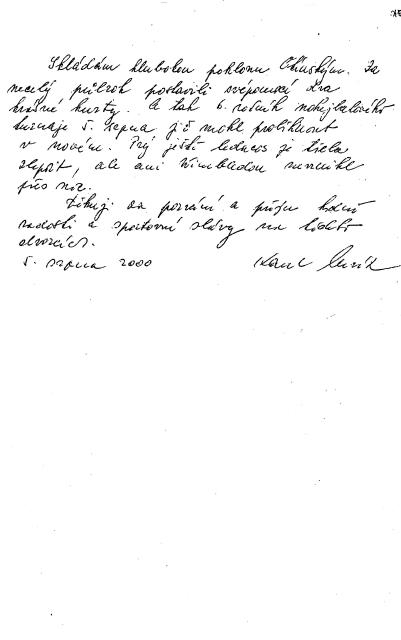 Skládám hlubokou poklonu Za
necelý půlrok postavili svépomocí dva
krásné kurty. A tak 6. ročník nohejbalového
turnaje 5. srpna, již mohl proběhnout
v novém. Prý ještě ledacos je třeba
zlepšit, ale ani Wimbledon nevznikl
přes noc.
Děkuji za pozvání a přeju hodně
radosti a sportovní slávy na těchto
dvorcích.
5. srpna 2000 Karel